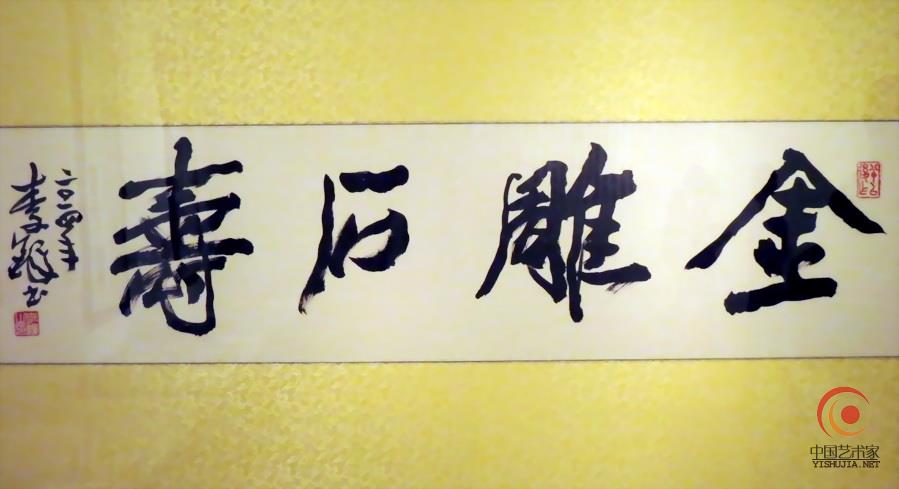 金雕石壽
二〇〇四年
李鐸书
中国艺术家
YISHUJIA.NET